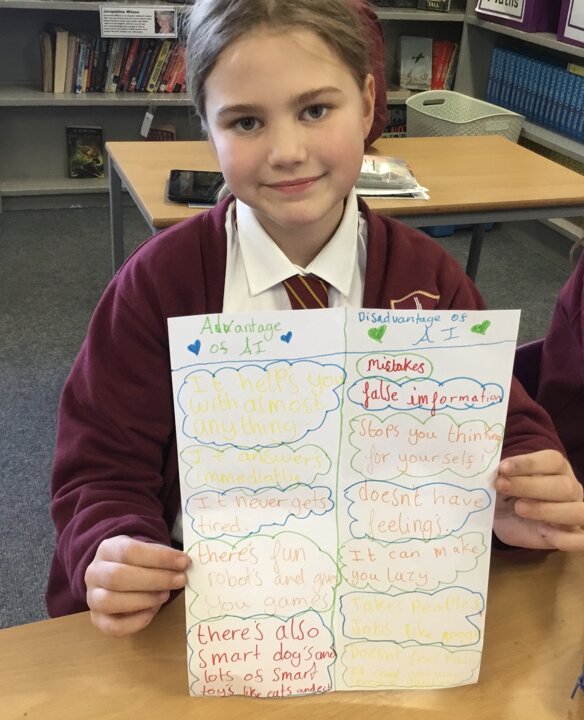 Jacqueline Wilson
Maths
Advantage
of AI
It help's you
with almost
any thing
It answer's
immediatly
It never gets
tired.
there's fun
robot's and
you games
there's also
smart dog's and
lots of smart
toy's like cats and
Disadvantage of
AI
mistakes
false imformation
Stops you thinking
for yourself!
doesnt have
feeling's.
It can make
you lazy
Takes people's
Jobs like
Doesn't